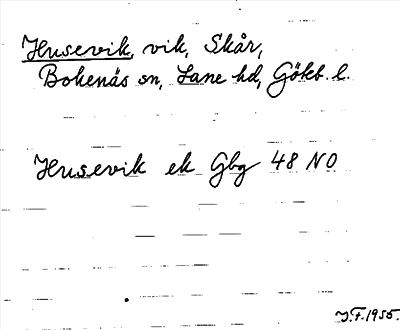 Husevik, vik, Skår,
Bokenäs sn, Lane hd, Göteb. l.
Husevik ek Gbg 48 NO
J.F. 1955.